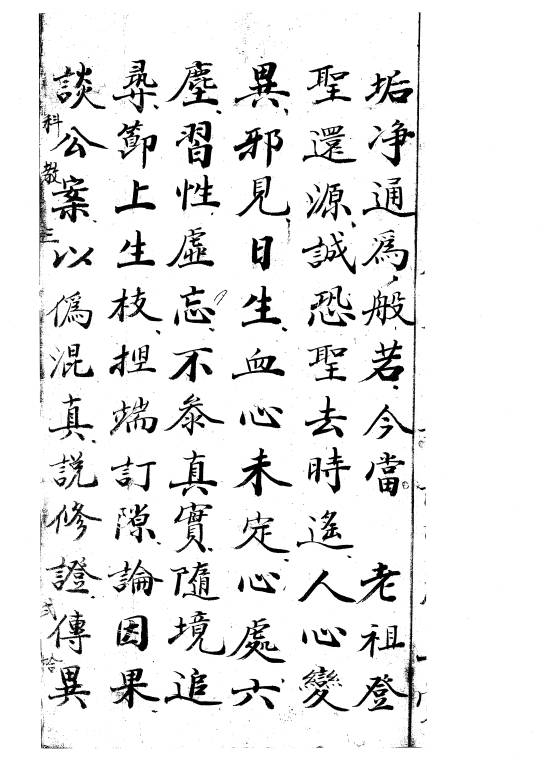 垢净通為般若今當　老祖登
聖還源誠恐聖去時遙人心變
異邪見日生血心未定心處六
塵習性虛忘不叅真實隨境追
尋節上生枝担端訂隙論因果
談公案以偽混真説修證傳異
科教三　弍拾